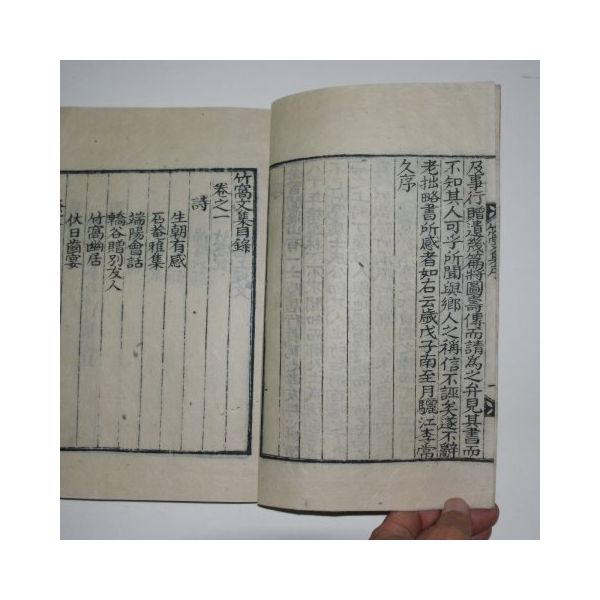 及事行贈遺幾篇將圖壽傳而請爲之弁見其書而
不知其人可乎所聞與鄉人之稱信不誣矣遂不辭
老拙略書所感者如右云歲戊子南至月驪江李常
久序
竹窩文集目錄
卷之一
詩
生朝有感
石菴雅集
端陽會話
轎谷贈別友人
竹窩幽居
休日齒宴